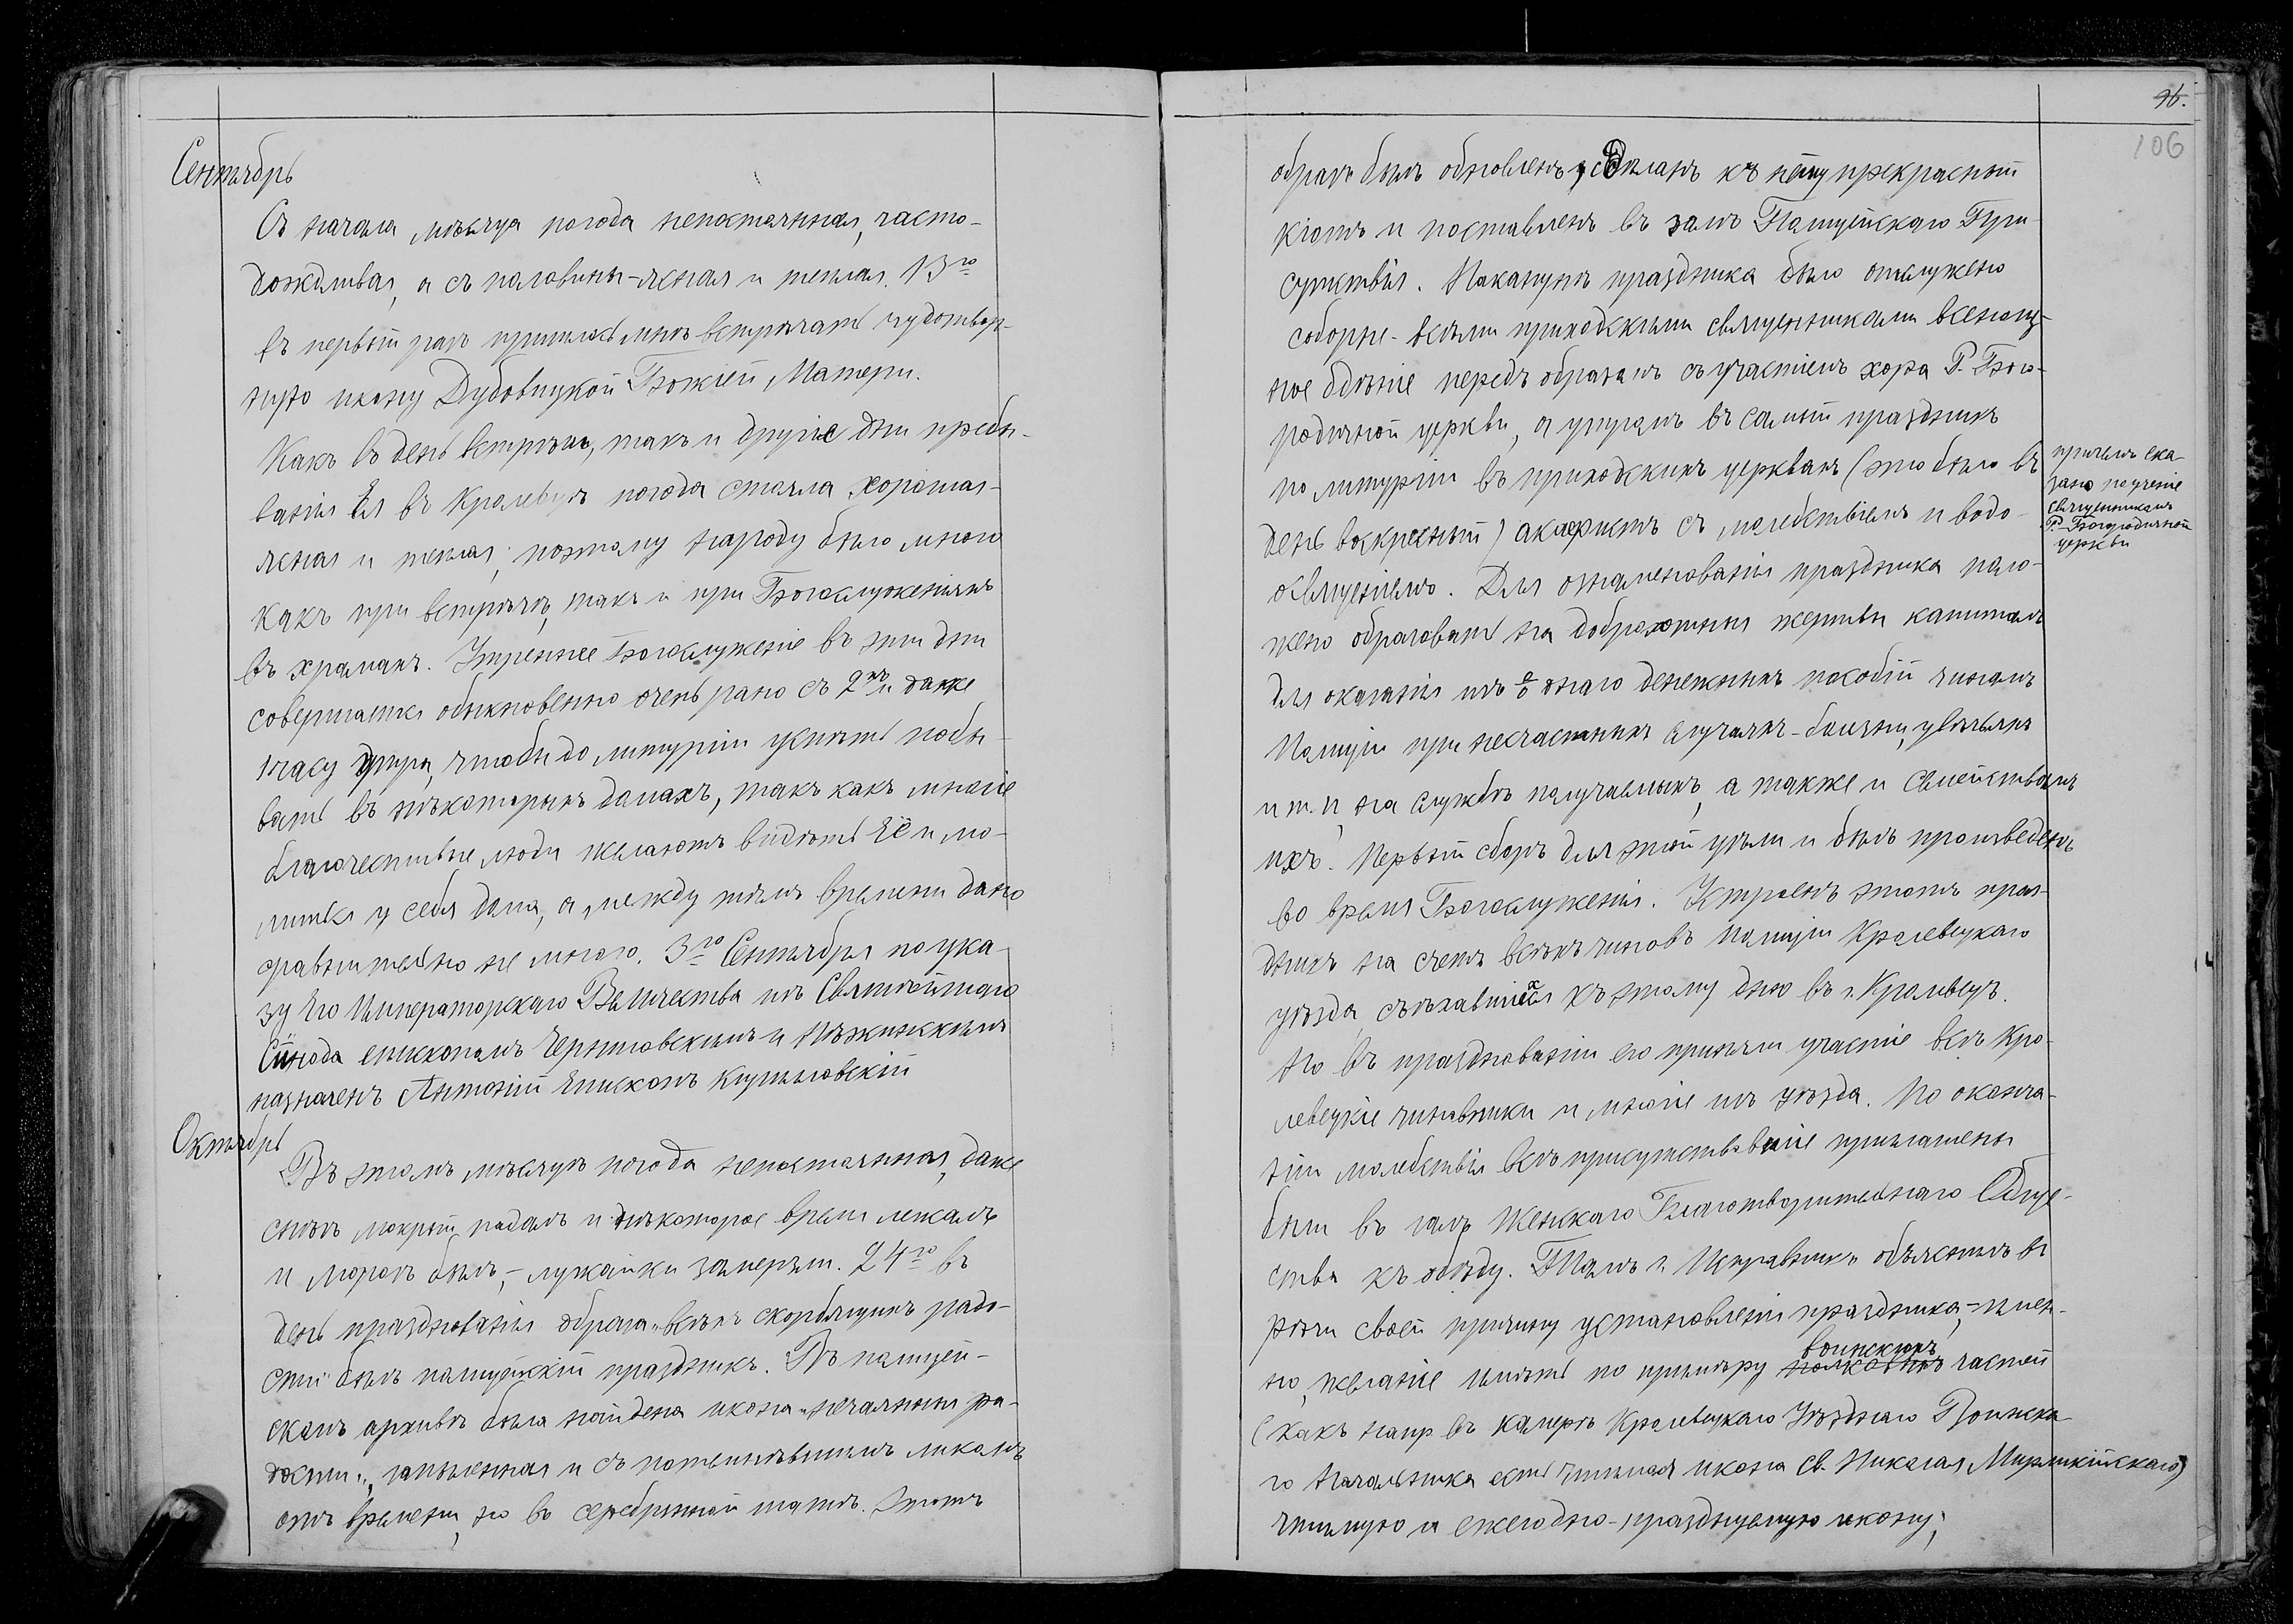 Сентябрь
Съ начала мѣсяца погода непостоянная, часто-
дождливая, а съ половины-ясная и теплая. 13го
въ первый разъ пришлось мнѣ встрѣчать чудотвор-
ную икону Дубовицкой Божіей Матери.
Какъ въ день встрѣчи, такъ и другіе дни пребы-
ванія Ея въ Кролевцѣ погода стояла хорошая-
ясная и теплая, поэтому народу было много
какъ при встрѣчѣ, такъ и при Богослуженіяхъ
въ храмахъ. Утреннее Богослуженіе въ эти дни
совершалось обыкновенно очень рано съ 2хъ и даже
часу утра, чтобы до литургіи успѣть побы-
вать въ нѣкоторыхъ домахъ, такъ какъ многіе
благочестивые люди желаютъ видѣть Её и мо-
литься у себя дома, а между тѣмъ времени дано
сравнительно не много. 3го Сентября по ука-
зу Его Императорскаго Величества изъ Святѣйшаго
Сѵнода епископомъ Черниговскимъ и Нѣжинскимъ
назначенъ Антоній Епископъ
Октябрь
Въ этомъ мѣсяцѣ погода непостоянная, даже
снѣгъ мокрый падалъ и нѣкоторое время лежалъ
и морозъ былъ,- лужайки замерзли. 24го въ
день празднованія образа "всѣхъ скорбящихъ радо-
сти" былъ полицейскій праздникъ. Въ полицей-
скомъ архивѣ была найдена икона "нечаянныя ра-
дости", запыленная и съ потемнѣвшимъ ликомъ
отъ времени, но въ серебрянной шатѣ. Этотъ
96.
106
образъ былъ обновленъ, сдѣланъ къ нему прекрасный
кіотъ и поставленъ въ залѣ Полицейскаго При-
сутствія. Наканунѣ праздника было отслужено
соборне-всѣми приходскими священниками всенощ-
ное бдѣніе передъ образомъ съ участіемъ хора Р.-Бого-
родичной церкви, а утромъ въ самый праздникъ
по литургіи въ приходскихъ церквахъ (это было въ
день воскресный) акафистъ съ молебствіемъ и водо-
освященіемъ. Для ознаменованія праздника поло-
жено образовать на доброхотныя жертвы капиталъ
для оказанія изъ %наго денежныхъ пособій чинамъ
Полиціи при несчастныхъ случаяхъ-болѣзни, увѣчьяхъ
и т. п, на службѣ получаемыхъ, а также и семействамъ
ихъ. Первый сборъ для этой цѣли и былъ произведенъ
во время Богослуженія. Устроенъ этотъ праз-
дникъ на счетъ всѣхъ чиновъ полиціи Кролевецкаго
уѣзда, съѣхавшихся къ этому дню въ г. Кролевецъ.
Но въ празднованіи его приняли участіе всѣ Кро-
левецкіе чиновники и многіе изъ уѣзда. По оконча-
ніи молебствія всѣ присутствовавшіе приглашены
были въ залъ Женскаго Благотворительнаго Обще-
ства къ обѣду. Тамъ г. Исправникъ объяснилъ въ
рѣчи своей причину установленія праздника,-имен-
но, желаніе имѣть по примѣру воинскихъ частей
(какъ напр въ камерѣ Кролевецкаго Уѣзднаго Воинска-
го Начальника есть чтимая икона св. Николая Мирликійскаго)
чтимую и ежегодно-празднуемую икону;
причемъ ска-
зано поученіе
священникомъ
Р.-Богородичной
церкви